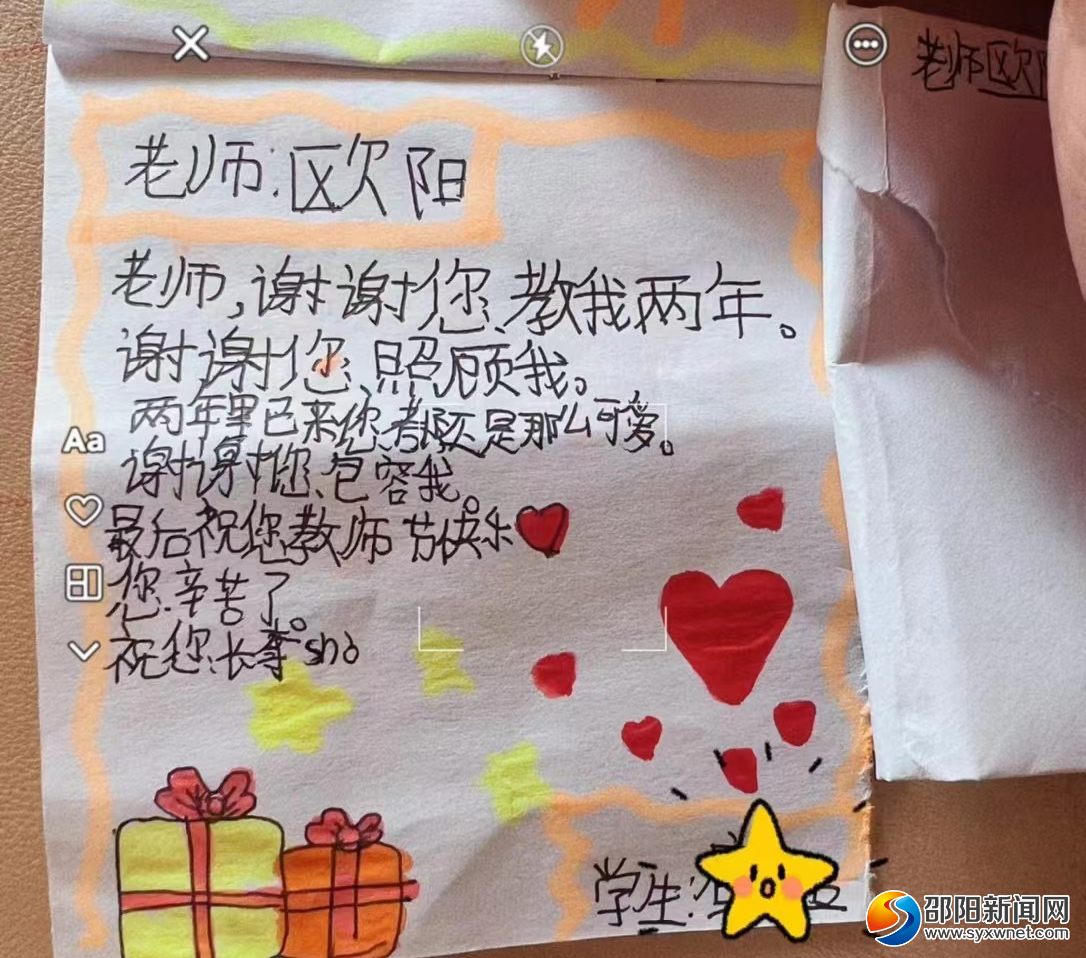 老师欧
老师:欧阳
老师,谢谢您教我两年。
谢谢您照顾我。
两年里已来您都还是那么可爱。
谢谢您包容我。
最后祝您教师节快乐
您辛苦了。
祝您:长寿shò
学生:
Aa
邵阳新闻网
www.syxwnet.com